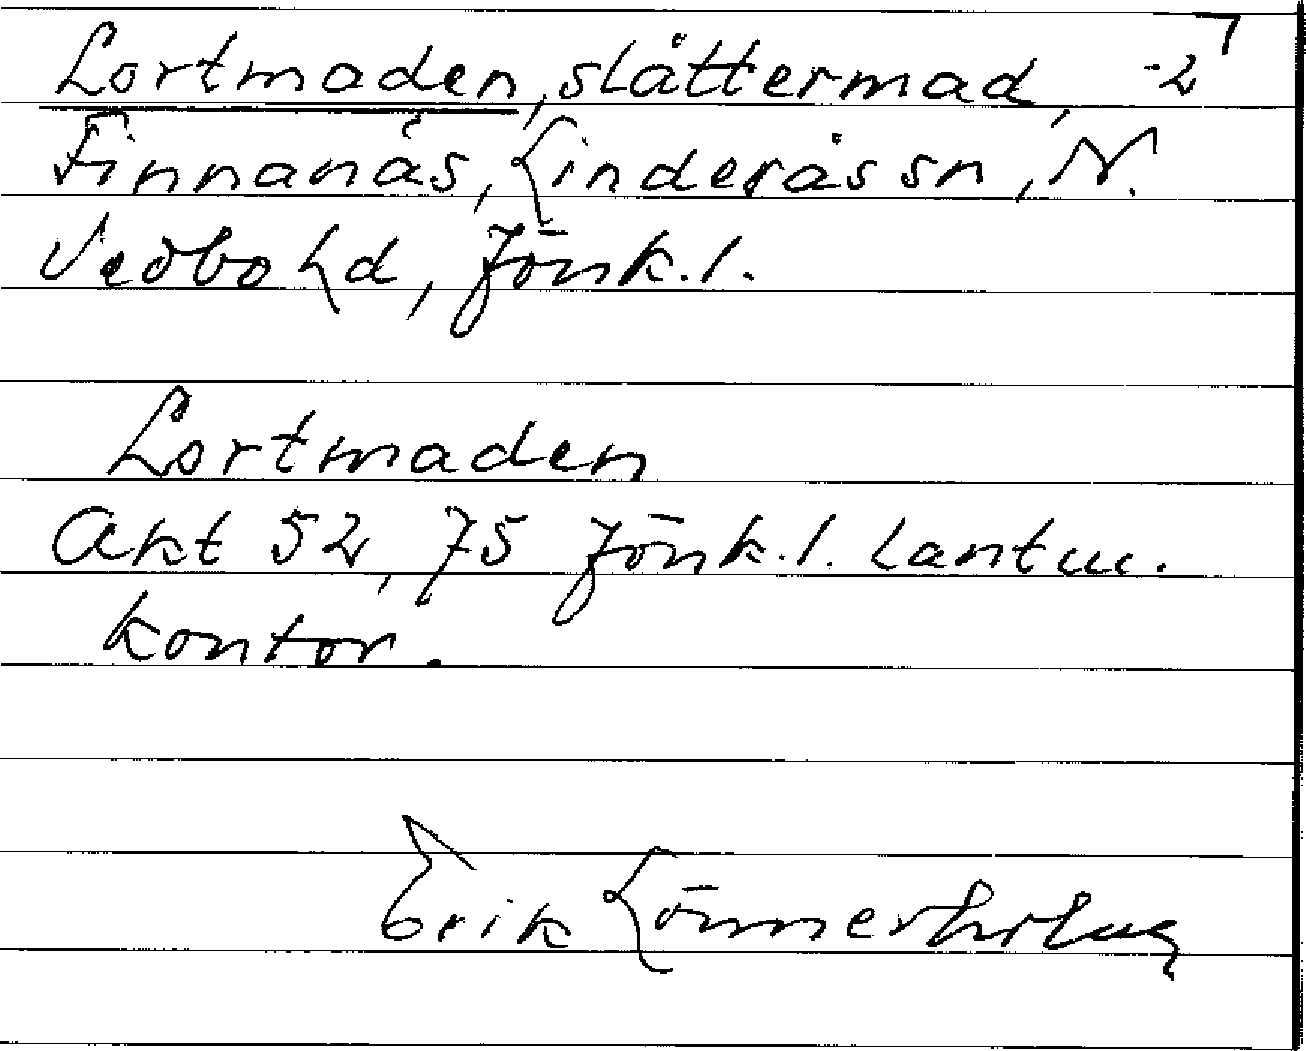 Lortmaden, slåttermad, -2 7
Finnanäs, Linderås sn, N.
Vedbo hd, Jönk. l.
Lortmaden
Akt 52, 75 Jönk. l. Lantm.
kontor.
Erik Lönnerholm